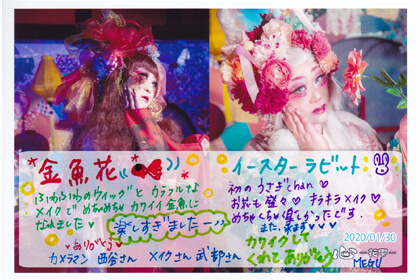 金魚花
ふわふわのウィッグと カラフルな
メイクで めちゃめちゃ カワイイ 金魚に
なれました♡
楽しすぎましたー♡♡
ありがとう♡
カメラマン 西谷さん メイクさん 武部さん
イースターラビット
初のうさぎchan♡
お花も盛々♡ キラキラメイク♡
めちゃくちゃ楽しかったです。
また、来ます♡♡♡
カワイクして
くれてありがとう
2020/01/30
MEGU